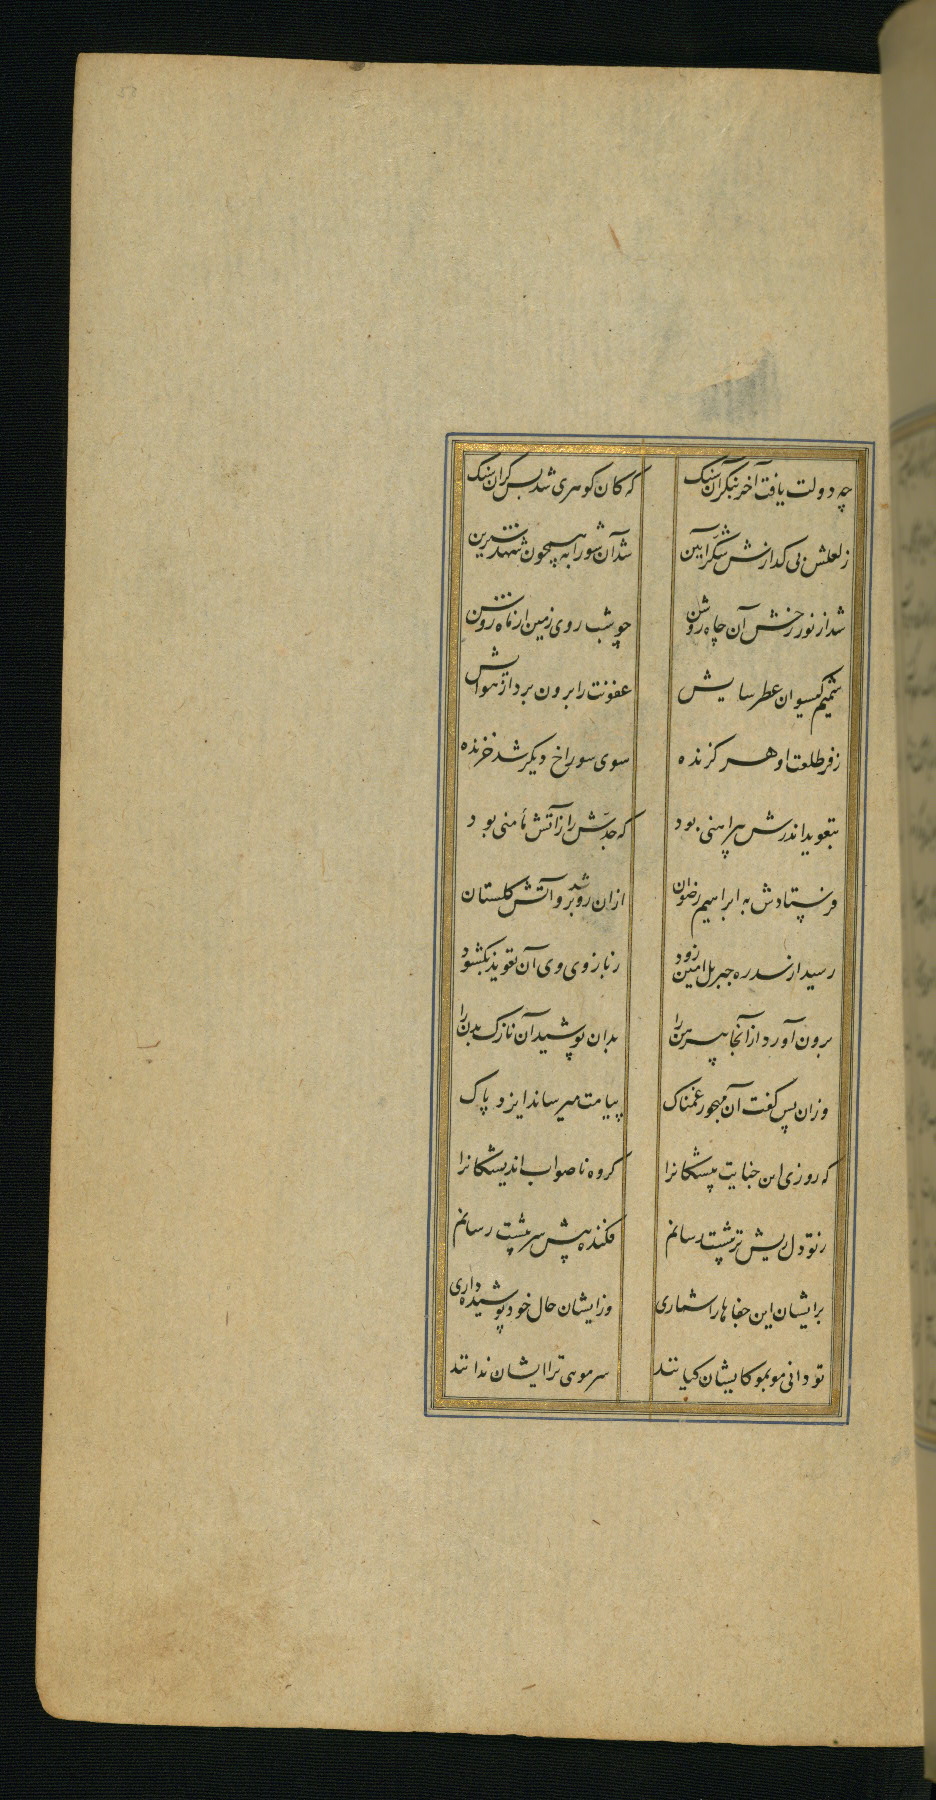 چه دولت یافت آخر بنگر آن سنک که کان کوهری شد بس کران سنک
ز لعلش بی کدارش شکر آیین شد آن شورابه همچون شهد شیرین
شد از نور رخش آن چاه روشن چو شب روی زمین از ماه روشن
شمیم کیسوان عطرسایش عفونت را برون برد از هوایش
ز فر طلعت او هر کزنده سوی سوراخ دیکر شد خزنده
بتعوید اندرش پیراهنی بود که جدش را ز آتش مأمنی بود
فرستادش به ابراهیم رضوان ازان رو شد برو آتش کلستان
رسید از سدره جبریل امین زود ز بازوی وی آن تعویذ بکشود
برون آورد از آنجا پیرهن را بدان پوشید آن نازک بدن را
وزان پس کفت آن مهجور غمناک پیامت میرساند ایزد پاک
که روزی این جنایت پیشکانرا کروه ناصواب اندیشکانرا
ز تو دل ریش تر پیشت رسانم فکنده پیش سر پیشت رسانم
بر ایشان این جفاها را شماری وز ایشان حال خود پوشیده داری
تو دانی مو بمو کایشان کیانند سر موی ترا ایشان ندانند